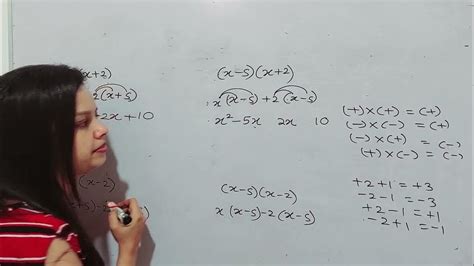 x+2)
2(x+5)
2x+10
(x-2)
(x-5)(x+2)
x(x-5)+2(x-5)
x²-5x 2x 10
(x-5)(x-2)
x(x-5)-2(x-5)
(+)x(+) = (+)
(-)x(-) = (+)
(-)x(+) = (-)
(+)x(-) = (-)
+2+1=+3
-2-1=-3
+2-1=+1
-2+1=-1